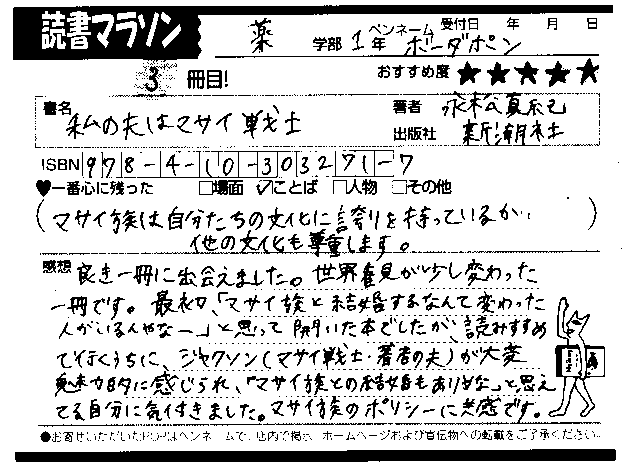 読書マラソン
薬 学部 1年 ペンネーム ボーダポン 受付日 年 月 日
3 冊目! おすすめ度 ★★★★★
書名 私の夫はマサイ戦士
著者 永松真紀
出版社 新潮社
ISBN 978-4-10-303271-7
♥一番心に残った □場面 ☑ことば □人物 □その他
(マサイ族は自分たちの文化に誇りを持っているが、
他の文化も尊重します。)
感想 良き一冊に出会えました。世界観が少し変わった
一冊です。最初、「マサイ族と結婚するなんて変わった
人がいるんやなー」と思って開いた本でしたが、読みすすめ
て行くうちに、ジャクソン(マサイ戦士・著者の夫)が大変
魅力的に感じられ、「マサイ族との結婚もありやな」と思え
てる自分に気付きました。マサイ族のポリシーに共感です。
●お寄せいただいたPOPはペンネームで、店内で掲示、ホームページおよび宣伝物への転載をご了承ください。